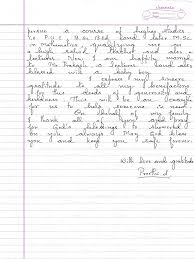 pursue a course of higher studies
in P.U.C, B.Sc, B.Ed, and later M.Sc
in Mathematics, qualifying me for
a high salary. Thanks
lecturer. Now I am happily married
to Mr. Prakash, a lecturer, and
blessed with a baby boy.
I express my sincere
gratitude to all my benefactors
for this deeds of generosity and
kindness. This will be an example
for us to help someone in need.
On the behalf of my family
I thank all of you and pray
for God's blessings to be showered
on you always. May God bless
you and keep you safe forever.
With love and gratitude